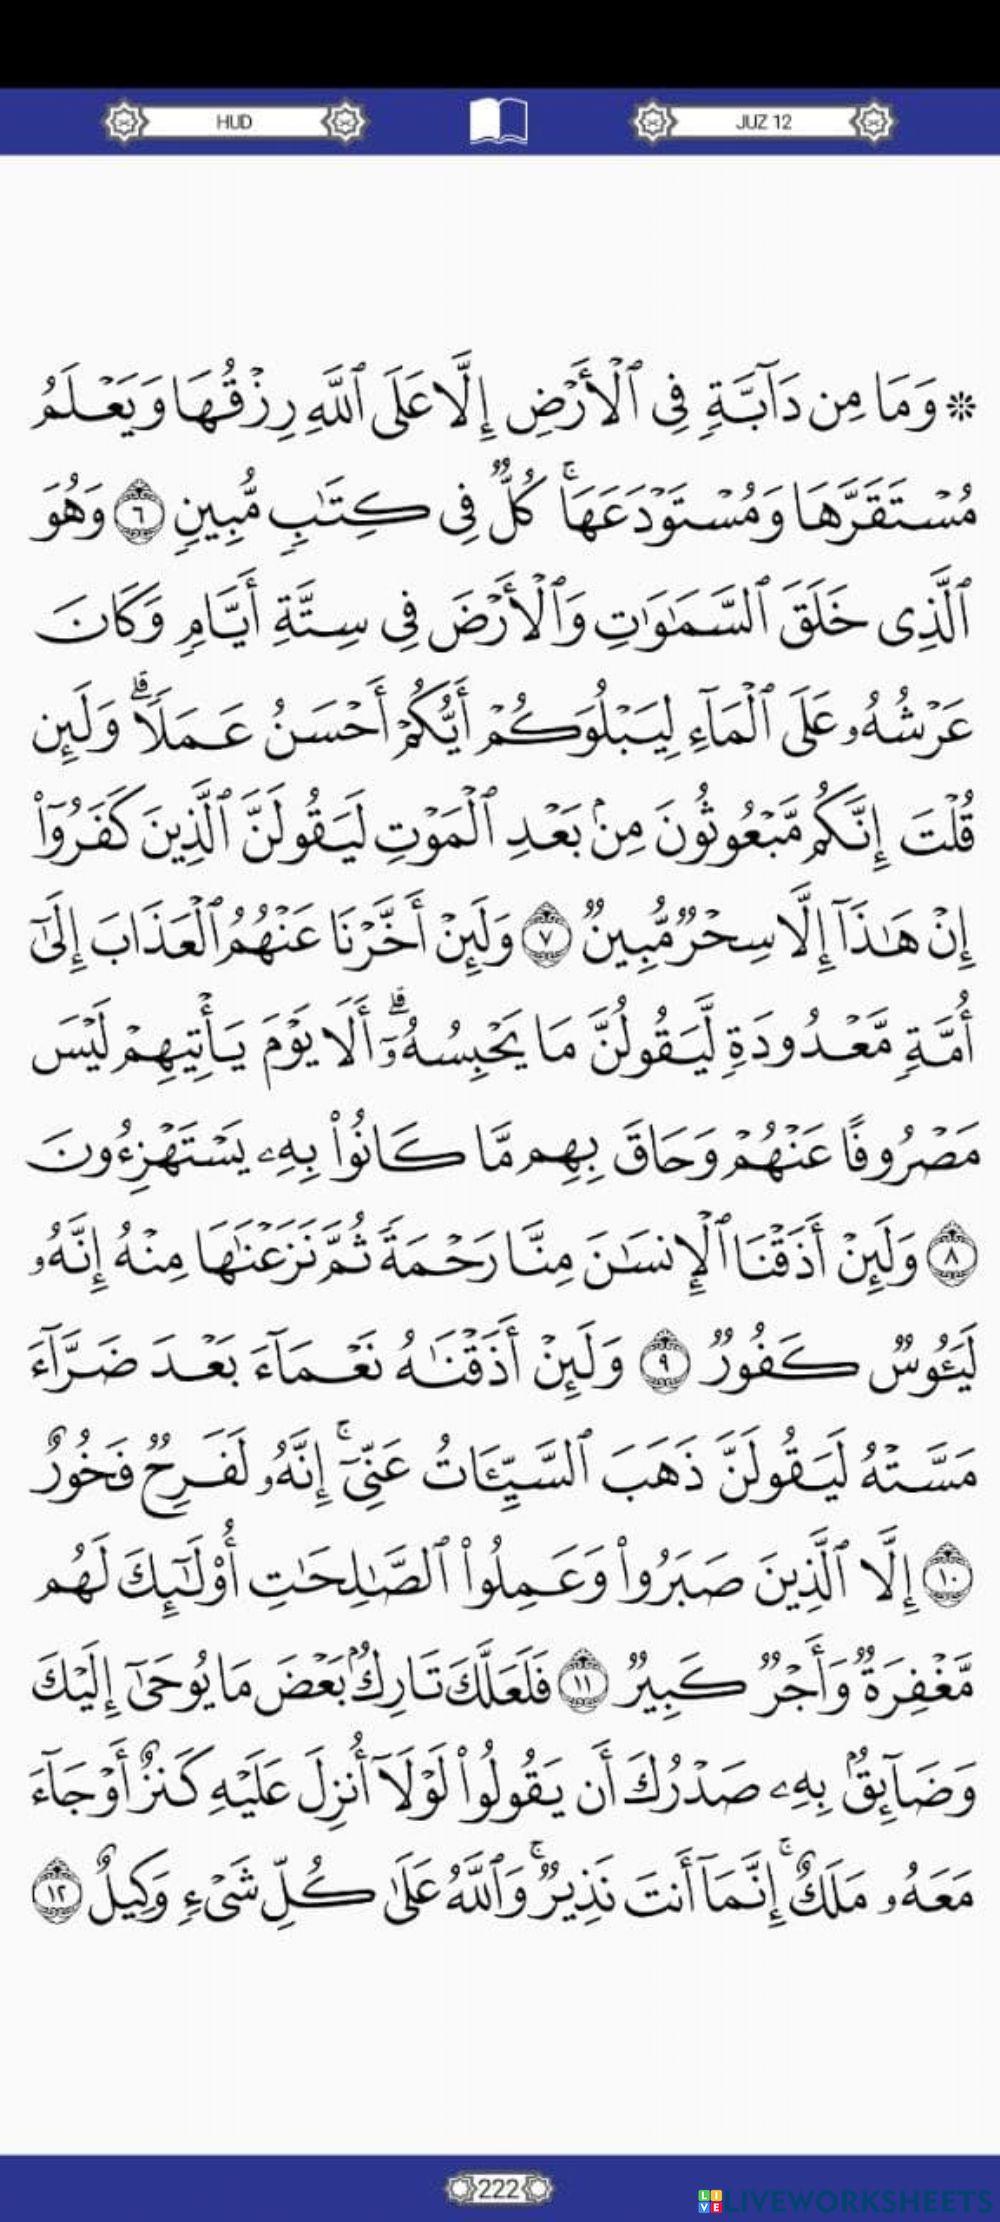 HUD
JUZ 12
۞ وَمَا مِن دَآبَّةٍ فِى ٱلْأَرْضِ إِلَّا عَلَى ٱللَّهِ رِزْقُهَا وَيَعْلَمُ
مُسْتَقَرَّهَا وَمُسْتَوْدَعَهَا ۚ كُلٌّ فِى كِتَٰبٍ مُّبِينٍ ٦ وَهُوَ
ٱلَّذِى خَلَقَ ٱلسَّمَٰوَٰتِ وَٱلْأَرْضَ فِى سِتَّةِ أَيَّامٍ وَكَانَ
عَرْشُهُۥ عَلَى ٱلْمَآءِ لِيَبْلُوَكُمْ أَيُّكُمْ أَحْسَنُ عَمَلًا ۗ وَلَئِن
قُلْتَ إِنَّكُم مَّبْعُوثُونَ مِنۢ بَعْدِ ٱلْمَوْتِ لَيَقُولَنَّ ٱلَّذِينَ كَفَرُوٓا۟
إِنْ هَٰذَآ إِلَّا سِحْرٌ مُّبِينٌ ٧ وَلَئِنْ أَخَّرْنَا عَنْهُمُ ٱلْعَذَابَ إِلَىٰٓ
أُمَّةٍ مَّعْدُودَةٍ لَّيَقُولُنَّ مَا يَحْبِسُهُۥٓ ۗ أَلَا يَوْمَ يَأْتِيهِمْ لَيْسَ
مَصْرُوفًا عَنْهُمْ وَحَاقَ بِهِم مَّا كَانُوا۟ بِهِۦ يَسْتَهْزِءُونَ
٨ وَلَئِنْ أَذَقْنَا ٱلْإِنسَٰنَ مِنَّا رَحْمَةً ثُمَّ نَزَعْنَٰهَا مِنْهُ إِنَّهُۥ
لَيَـُٔوسٌ كَفُورٌ ٩ وَلَئِنْ أَذَقْنَٰهُ نَعْمَآءَ بَعْدَ ضَرَّآءَ
مَسَّتْهُ لَيَقُولَنَّ ذَهَبَ ٱلسَّيِّـَٔاتُ عَنِّىٓ ۚ إِنَّهُۥ لَفَرِحٌ فَخُورٌ
١٠ إِلَّا ٱلَّذِينَ صَبَرُوا۟ وَعَمِلُوا۟ ٱلصَّٰلِحَٰتِ أُو۟لَٰٓئِكَ لَهُم
مَّغْفِرَةٌ وَأَجْرٌ كَبِيرٌ ١١ فَلَعَلَّكَ تَارِكٌۢ بَعْضَ مَا يُوحَىٰٓ إِلَيْكَ
وَضَآئِقٌۢ بِهِۦ صَدْرُكَ أَن يَقُولُوا۟ لَوْلَآ أُنزِلَ عَلَيْهِ كَنزٌ أَوْ جَآءَ
مَعَهُۥ مَلَكٌ ۚ إِنَّمَآ أَنتَ نَذِيرٌ ۚ وَٱللَّهُ عَلَىٰ كُلِّ شَىْءٍ وَكِيلٌ ١٢
222
LIVEWORKSHEETS